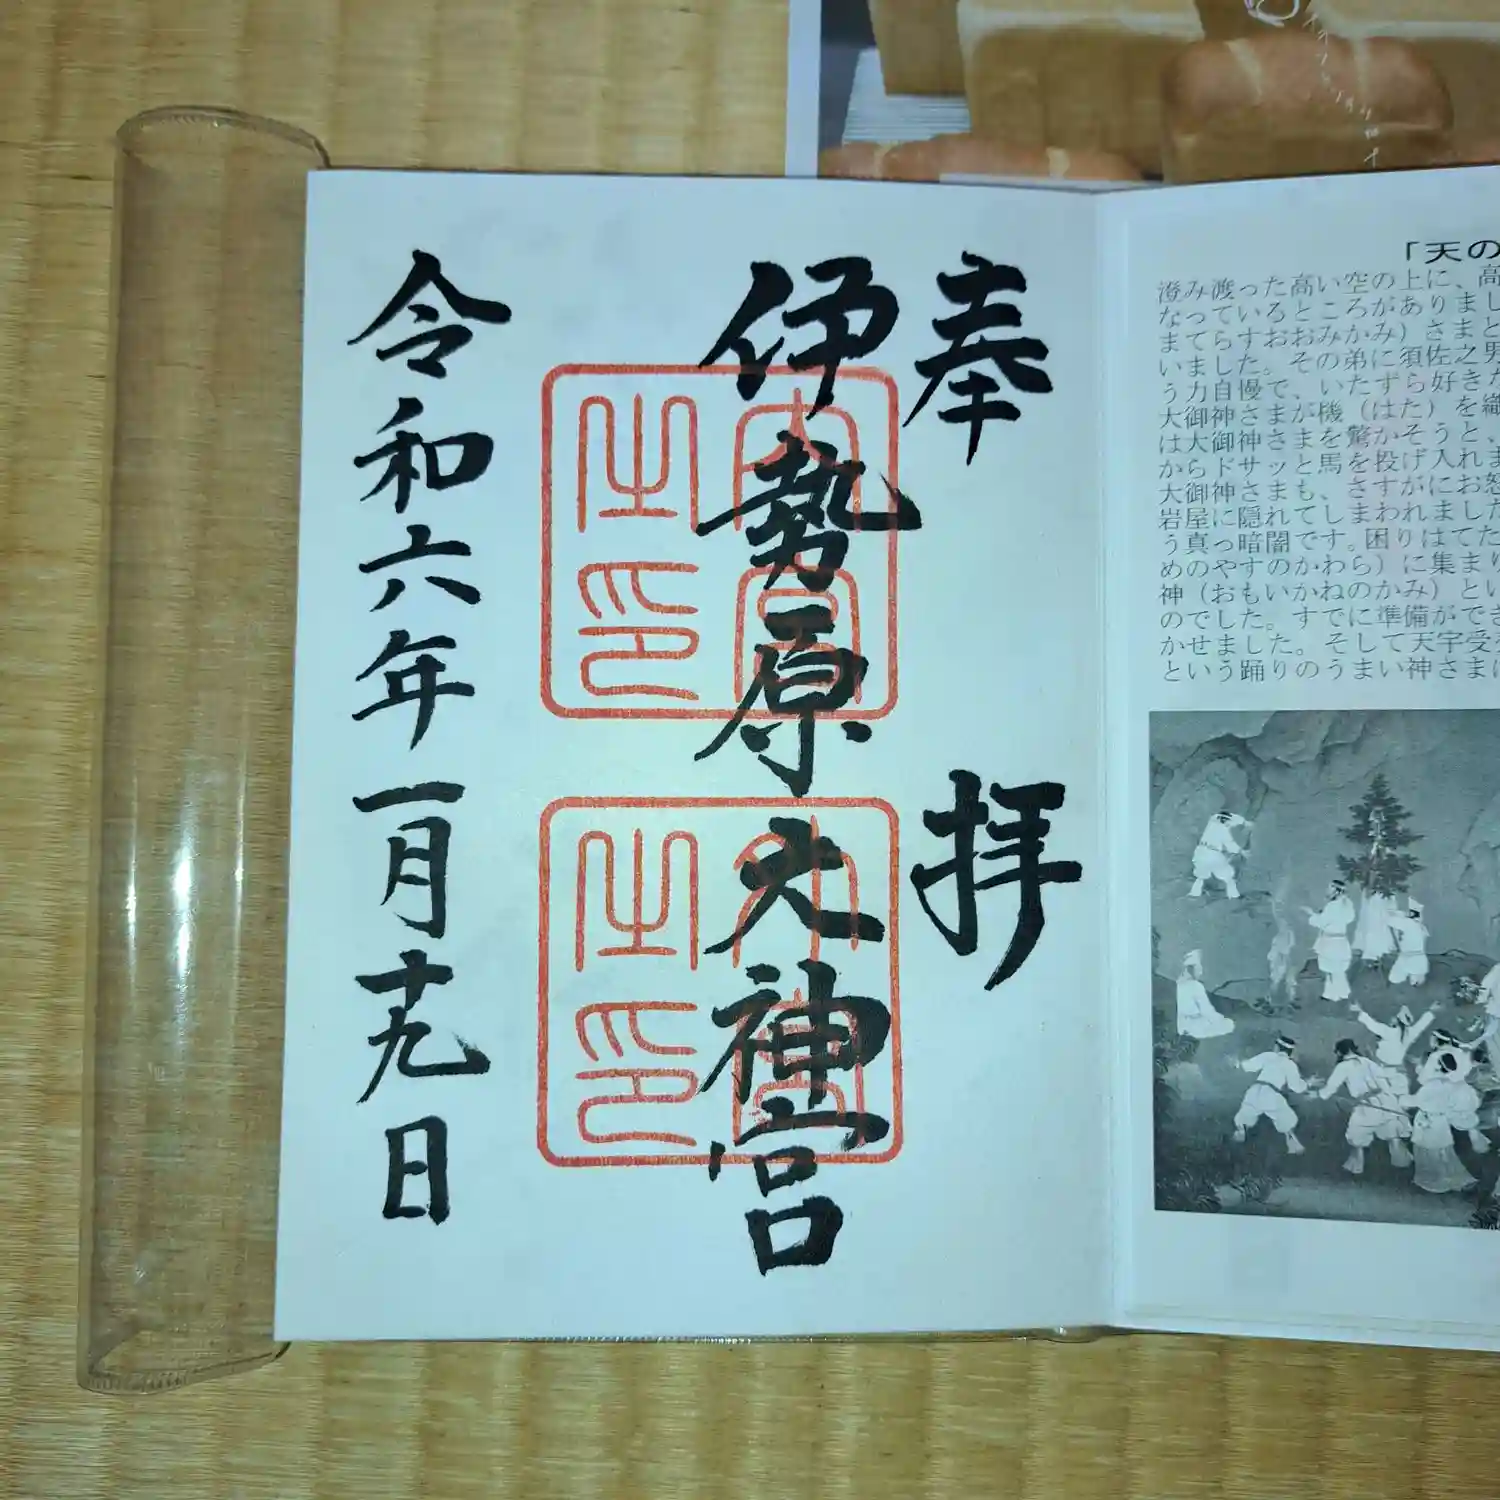 奉拝
伊勢原大神宮
令和六年一月十九日
内宮之印
外宮之印
「天の
澄み渡った高い空の上に、高
なっているところがありまし
まてらすおおみかみ）さまと
いました。その弟に須佐之男
う力自慢で、いたずら好きだ
大御神さまが機（はた）を織
は大御神さまを驚かそうと、
からドサッと馬を投げ入れま
大御神さまも、さすがにお怒
岩屋に隠れてしまわれました
う真っ暗闇です。困りはてた
めのやすのかわら）に集まり
神（おもいかねのかみ）とい
のでした。すでに準備ができ
かせました。そして天宇受
という踊りのうまい神さまに